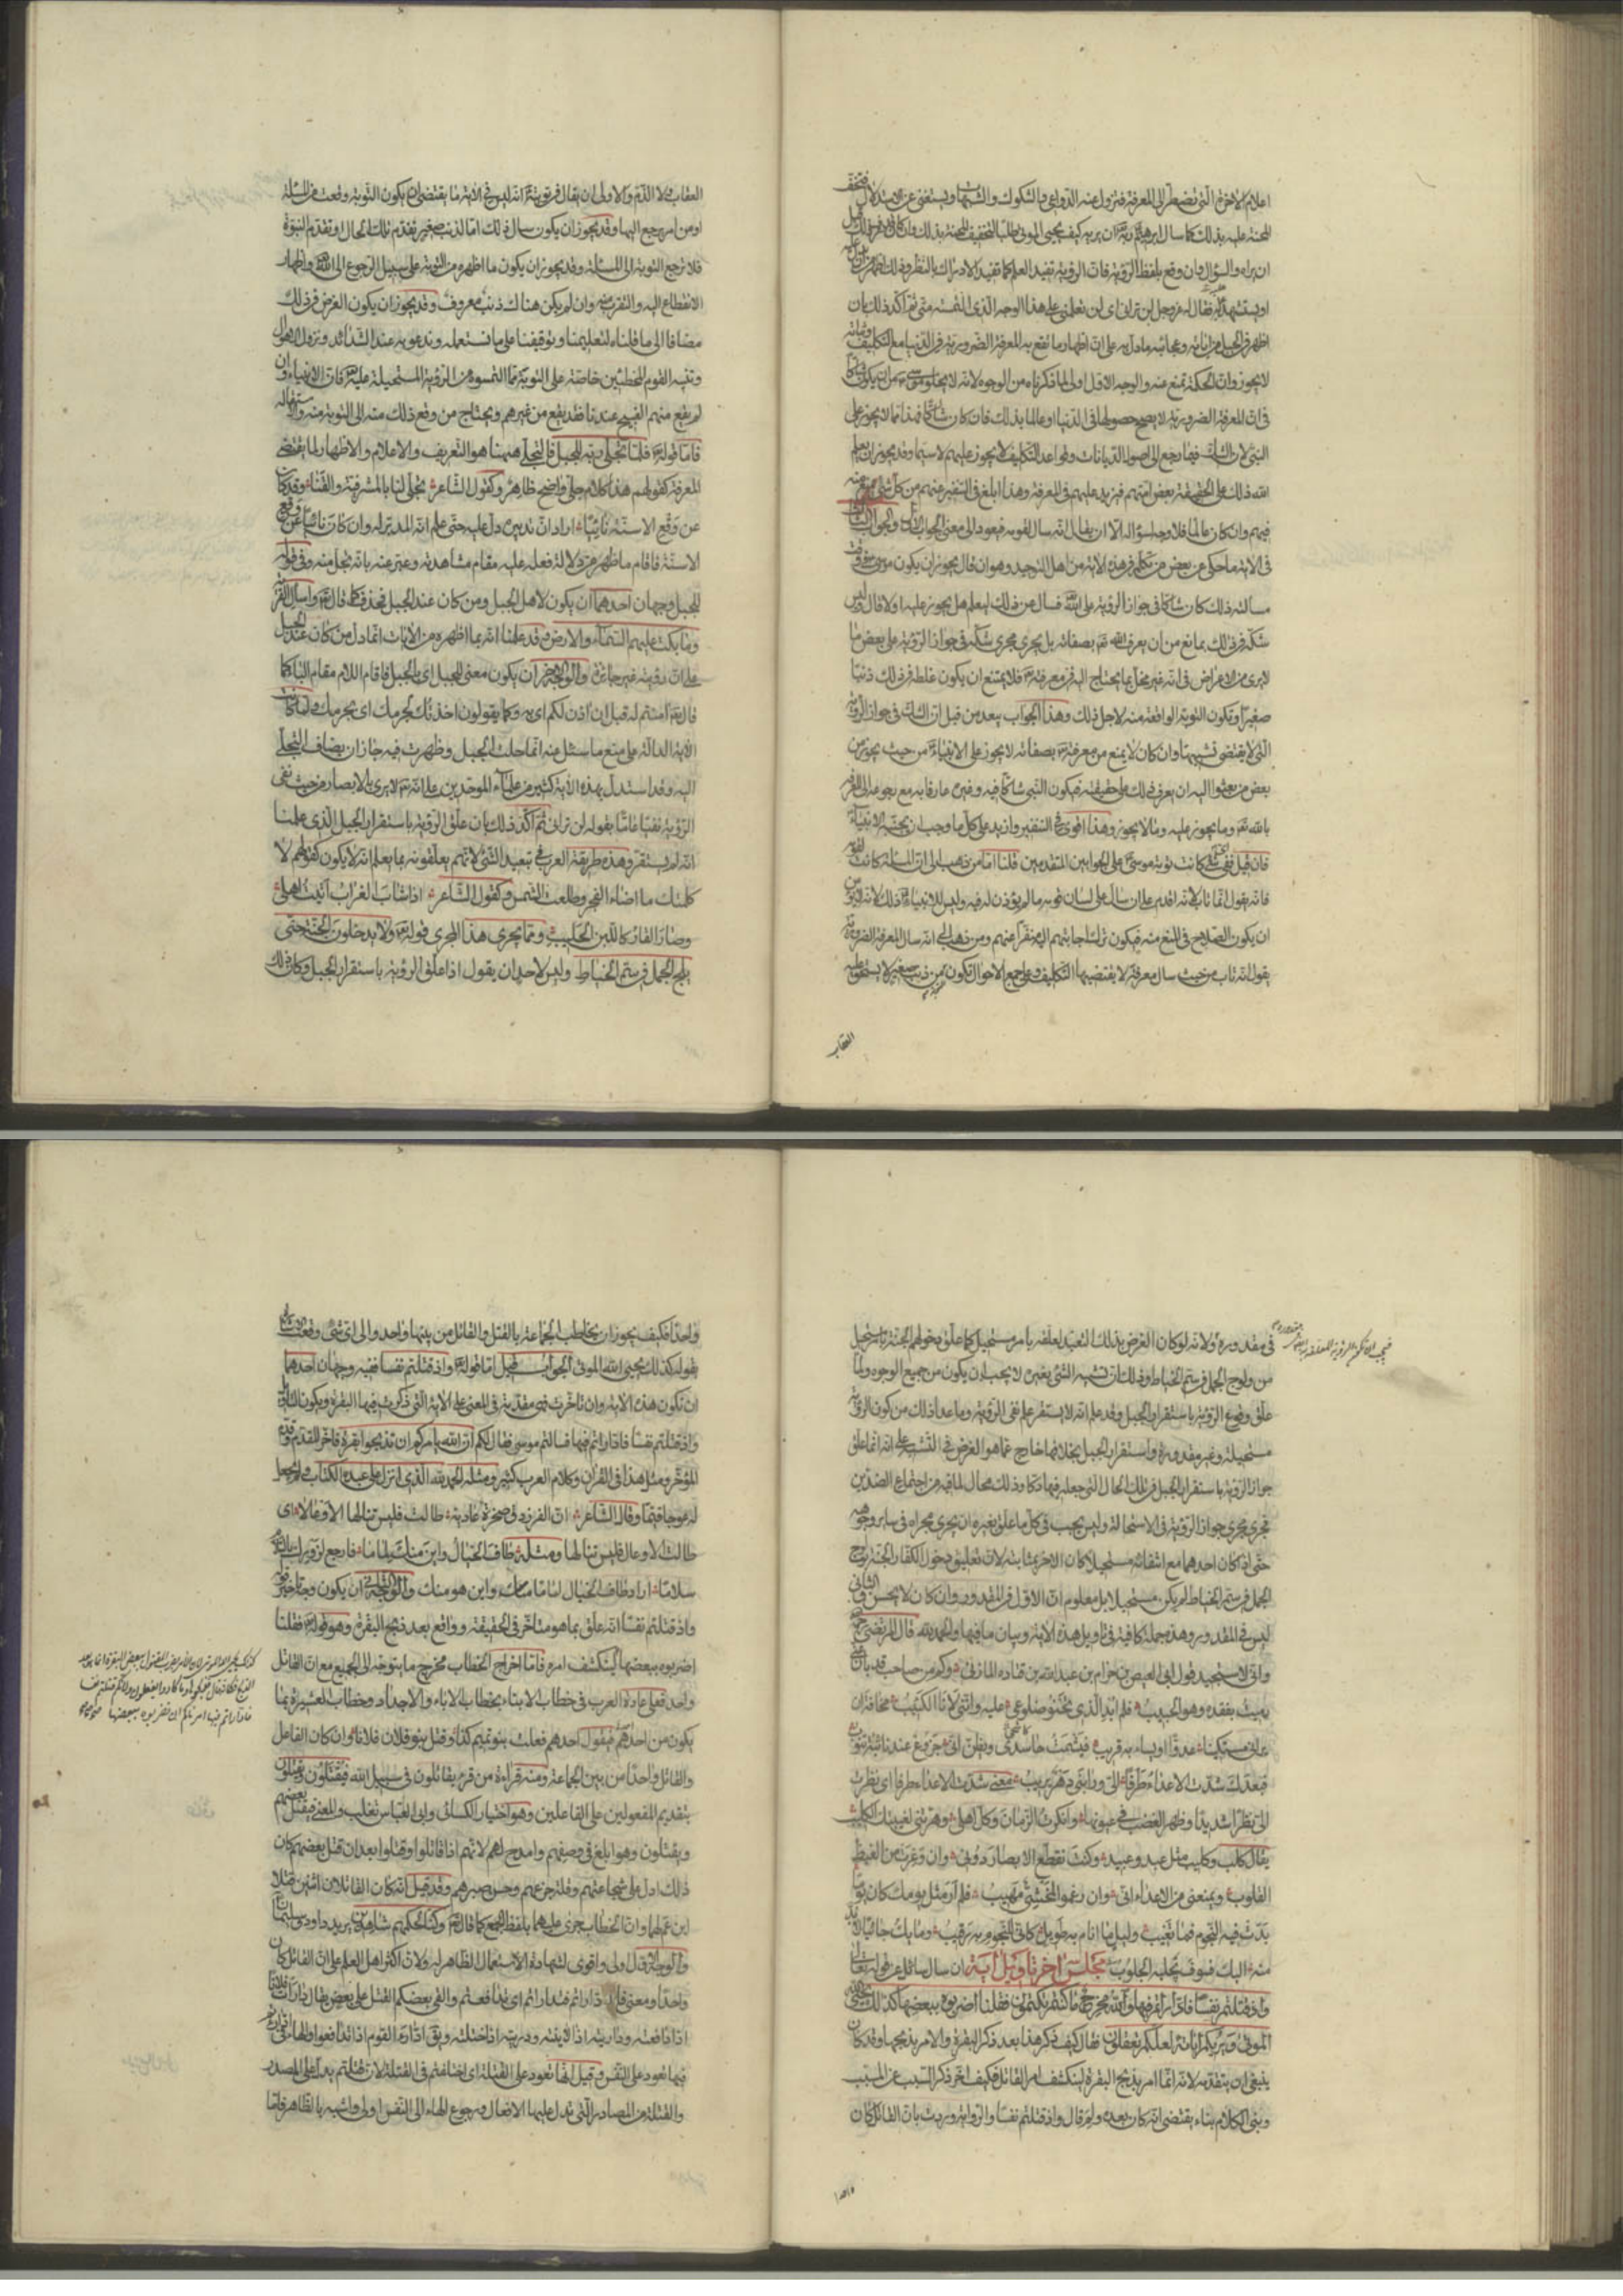 اعلام الاخرة التي تضطر الى المعرفة فتزول عنه الدواعي والشكوك والشبهات ويستغنى عن الاستدلال فتخف
المحنة عليه بذلك كما سال ابرهيم ربه ان يريه كيف يحيى الموتى طلبا لتخفيف المحنة بذلك وان كان قد عرف ذلك قبل
ان يراه والسؤال وان وقع بلفظ الرؤية فان الرؤية تفيد العلم كما تفيد الادراك بالنظر وذلك اظهر من ان يستدل عليه
او يستشهد عليه فقال له عز وجل لن ترانى اى لن تعلمني على هذا الوجه الذى التمسته منى ثم اكد ذلك بان
اظهر فى الجبل من اياته وعجائبه ما دل به على ان اظهار ما تقع به المعرفة الضرورية فى الدنيا مع التكليف وبيانه
لا يجوز وان الحكمة تمنع عنه والوجه الاول اولى لما ذكرناه من الوجوه لانه لا يخلو موسى من ان يكون شاكا
فى ان المعرفة الضرورية لا يصح حصولها فى الدنيا او عالما بذلك فان كان شاكا فهذا مما لا يجوز على
النبى لان الشك فيما رجع الى اصول الديانات وقواعد التكليف لا يجوز عليهم لا سيما وقد يجوز ان يعلم
الله ذلك على الحقيقة بعض امتهم فيزيد عليهم فى المعرفة وهذا ابلغ فى التنفير عنهم من كل شئ يمنع منه
فيهم وان كان عالما فلا وجه لسؤاله الا ان يقال انه سال لقومه فيعود الى معنى الجواب الاول والجواب الثالث
فى الاية ما حكى عن بعض من تكلم فى هذه الاية من اهل التوحيد وهو ان قال يجوز ان يكون موسى فى وقت
مسالته ذلك كان شاكا فى جواز الرؤية على الله فسال عن ذلك ليعلم هل يجوز عليه او لا قال وليس
شكه فى ذلك بمانع من ان يعرف الله تعم بصفاته بل يجرى مجرى شكه فى جواز الرؤية على بعض ما
لا يرى من الاعراض فى انه غير مخل بما يحتاج اليه فى معرفته فلا يمتنع ان يكون غلطه فى ذلك ذنبا
صغيرا وتكون التوبة الواقعة منه لاجل ذلك وهذا الجواب يبعد من قبل ان الشك فى جواز الرؤية
التى لا يقتضى تشبيها وان كان لا يمنع من معرفته بصفاته لا يجوز على الانبياء من حيث يجوز من
بعض من بعثوا اليه ان يعرف ذلك على حقيقته فيكون النبى شاكا فيه وغيره عارفا به مع رجوعه الى المعرفة
بالله تعم وما يجوز عليه وما لا يجوز وهذا اقوى فى التنفير وازيد على كل ما وجب ان يجتنبه الانبياء
فان قيل فعن اى شئ كانت توبة موسى على الجوابين المتقدمين قلنا اما من ذهب الى ان المسالة كانت لقومه
فانه يقول انما تاب لانه اقدم على ان سال على لسان قومه ما لم يؤذن له فيه وليس للانبياء ذلك لانه لا يؤمن
ان يكون الصلاح فى المنع منه فيكون ترك اجابتهم اليه منفرا عنهم ومن ذهب الى انه سال المعرفة الضرورية
يقول انه تاب من حيث سال معرفة لا يقتضيها التكليف وعلى جميع الاحوال تكون من ذنب صغير لا يستحق عليه
العقاب
العقاب ولا الذم والاولى ان يقال فى توبته انه ليس فى الاية ما يقتضى ان يكون التوبة وقعت من المسئلة
او من امر يرجع اليها وقد يجوز ان يكون سال ذلك اما لذنب صغير تقدم تلك الحال او تقدم النبوة
فلا ترجع التوبة الى المسئلة وقد يجوز ان يكون ما اظهره من التوبة على سبيل الرجوع الى الله واظهار
الانقطاع اليه والتقرب منه وان لم يكن هناك ذنب معروف وقد يجوز ان يكون الغرض فى ذلك
مضافا الى ما قلناه تعليمنا وتوقيفنا على ما نستعمله وندعو به عند الشدائد ونزول الاهوال
وتنبيه القوم المخطئين خاصة على التوبة مما التمسوه من الرؤية المستحيلة عليه فان الانبياء وان
لم يقع منهم القبيح عندنا فقد يقع من غيرهم ويحتاج من وقع ذلك منه الى التوبة منه والاستقالة
فاما قوله فلما تجلى ربه للجبل فالتجلى ههنا هو التعريف والاعلام والاظهار لما يقتضى
المعرفة كقولهم هذا كلام جلى واضح ظاهر وكقول الشاعر تجلى لنا بالمشرفية والقنا وقد كان
عن وقع الاسنة نائيا اراد ان تدبيره دل عليه حتى علم انه المدبر له وان كان نائيا عن وقع
الاسنة فاقام ما ظهر من دلالة فعله عليه مقام مشاهدته وعبر عنه بانه تجلى منه وفى قوله
للجبل وجهان احدهما ان يكون لاهل الجبل ومن كان عند الجبل فحذف كما قال واسال القرية
وما بكت عليهم السماء والارض وقد علمنا انه بما اظهره من الايات انما دل من كان عند الجبل
على ان رؤيته غير جائزة والوجه الاخر ان يكون معنى للجبل اى بالجبل فاقام اللام مقام الباء كما
قال امنتم له قبل ان اذن لكم اى به وكما يقولون اخذتك لجرمك اى بجرمك ولما كانت
الاية الدالة على منع ما سئل عنه انما حلت الجبل وظهرت فيه جاز ان يضاف التجلى
اليه وقد استدل بهذه الاية كثير من علماء الموحدين على انه تعم لا يرى بالابصار من حيث نفى
الرؤية نفيا عاما بقوله لن ترانى ثم اكد ذلك بان علق الرؤية باستقرار الجبل الذى علمنا
انه لم يستقر وهذه طريقة العرب فى تبعيد الشئ لانهم يعلقونه بما يعلم انه لا يكون كقولهم لا
كلمتك ما اضاء الفجر وطلعت الشمس وكقول الشاعر اذا شاب الغراب اتيت اهلى
وصار القار كاللبن الحليب ومما يجرى هذا المجرى قوله ولا يدخلون الجنة حتى
يلج الجمل فى سم الخياط وليس لاحد ان يقول اذا علق الرؤية باستقرار الجبل وكان ذلك
فى مقدوره ولانه لو كان الغرض بذلك التبعيد لعلقه بامر مستحيل كما علق دخولهم الجنة بامر مستحيل
من ولوج الجمل فى سم الخياط وذلك ان تشبيه الشئ بغيره لا يجب ان يكون من جميع الوجوه ولما
علق وقوع الرؤية باستقرار الجبل وقد علم انه لا يستقر علم نفى الرؤية وما عدا ذلك من كون الرؤية
مستحيلة وغير مقدورة واستقرار الجبل بخلافها خارج عما هو الغرض فى التشبيه على انه انما علق
جواز الرؤية باستقرار الجبل فى تلك الحال التى جعله فيها دكا وذلك محال لما فيه من اجتماع الضدين
فجرى مجرى جواز الرؤية فى الاستحالة وليس يجب فى كل ما علق بغيره ان يجرى مجراه فى ساير وجوهه
حتى اذا كان احدهما مع انتفائه مستحيلا كان الاخر بمثابته لان تعليق دخول الكفار الجنة بولوج
الجمل فى سم الخياط لم يكن مستحيلا بل معلوم ان الاول فى المقدور وان كان لا يحسن والثانى
ليس فى المقدور وهذه جملة كافية فى تاويل هذه الاية وبيان ما فيها والحمد لله قال المرتضى
وانى لاستجيد قول ابى العيص بن حزام بن عبد الله بن قتادة المازنى وكم من صاحب قد بان عنى
رميت بفقده وهو الحبيب فلم ابد الذى تحنو ضلوعى عليه واننى لانا الكئيب مخافة ان
يرانى مستكينا عدو او يساء به قريب فيشمت كاشح ويظن انى جزوع عند نائبة تنوب
فبعدك شدت الاعداء طرفا الى ورابنى دهر يريب معنى شدت الاعداء طرفا اى نظرت
الى نظرا شديدا وظهر الغضب فى عيونها وانكرت الزمان وكل اهلى وهرتنى لغيبتك الكليب
يقال كلب وكليب مثل عبد وعبيد وكنت تقطع الابصار دونى وان وغرت من الغيظ
القلوب ويمنعنى من الاعداء انى وان رغموا لمخشى مهيب فلم ار مثل يومك كان يوما
بدت فيه النجوم فما تغيب وليل ما انام به طويل كانى للنجوم به رقيب وما يك جائيا لا بد
منه اليك فسوف تجلبه الجلوب مجلس اخر تاويل اية ان سال سائل عن قوله تعالى
واذ قتلتم نفسا فاداراتم فيها والله مخرج ما كنتم تكتمون فقلنا اضربوه ببعضها كذلك يحيى الله
الموتى ويريكم اياته لعلكم تعقلون فقال كيف ذكر هذا بعد ذكر البقرة والامر بذبحها وقد كان
ينبغى ان يتقدمه لانه انما امر بذبح البقرة لينكشف امر القاتل فكيف اخر ذكر السبب عن المسبب
وبنى الكلام بناء يقتضى انه كان بعده ولم قال واذ قتلتم نفسا والرواية وردت بان القاتل كان
واحدا
واحدا فكيف يجوز ان يخاطب الجماعة بالقتل والقاتل من بينها واحد والى اى شئ وقعت الاشارة
بقوله كذلك يحيى الله الموتى الجواب قيل اما قوله واذ قتلتم نفسا ففيه وجهان احدهما
ان تكون هذه الاية وان تاخرت فهى مقدمة فى المعنى على الاية التى ذكرت فيها البقرة ويكون التاويل
واذ قتلتم نفسا فاداراتم فيها فسالتم موسى فقال لكم ان الله يامركم ان تذبحوا بقرة فاخر المقدم وقدم
المؤخر ومثل هذا فى القران وكلام العرب كثير ومثله الحمد لله الذى انزل على عبده الكتاب ولم يجعل
له عوجا قيما وقال الشاعر ان الفرزدق صخرة عادية طالت فليس تنالها الاوعالا اى
طالت الاوعال فليس تنالها ومثله طاف الخيال واين منك لماما فارجع لزورك بالسلام
سلاما اراد طاف الخيال لماما منك واين هو منك والوجه الثانى ان يكون وجه تاخير قوله
واذ قتلتم نفسا انه علق بما هو متاخر فى الحقيقة وواقع بعد ذبح البقرة وهو قوله فقلنا
اضربوه ببعضها لينكشف امره فاما اخراج الخطاب مخرج ما يتوجه الى الجميع مع ان القاتل
واحد فعلى عادة العرب فى خطاب الابناء بخطاب الاباء والاجداد وخطاب العشيرة بما
يكون من احدهم فيقول احدهم فعلت بنو تميم كذا وقتل بنو فلان فلانا وان كان الفاعل
والقاتل واحدا من بين الجماعة ومنه قراءة من قرء يقاتلون فى سبيل الله فيقتلون ويقتلون
بتقديم المفعولين على الفاعلين وهو اختيار الكسائى وابى العباس ثعلب والمعنى فيقتل بعضهم
ويقتلون وهو ابلغ فى وصفهم وامدح لهم لانهم اذا قاتلوا وقتلوا بعد ان قتل بعضهم كان
ذلك ادل على شجاعتهم وقلة جزعهم وحسن صبرهم وقد قيل انه كان القاتلان اثنين قتلا
ابن عم لهما وان الخطاب جرى عليهما بلفظ الجمع كما قال وكنا لحكمهم شاهدين يريد داود وسليمان
والوجه الاول اولى واقوى لشهادة الاستعمال الظاهر له ولان اكثر اهل العلم على ان القاتل كان
واحدا ومعنى فاداراتم فتداراتم اى تدافعتم والقى بعضكم القتل على بعض يقال دارات فلانا
اذا دافعته وداريته اذا لاينته ودريته اذا ختلته ويق ادارء القوم اذا تدافعوا والهاء فى قوله
فيها تعود على النفس وقيل انها تعود على القتلة اى اختلفتم فى القتلة لان قتلتم يدل على المصدر
والقتلة من المصادر التى تدل عليها الافعال ورجوع الهاء الى النفس اولى واشبه بالظاهر فاما